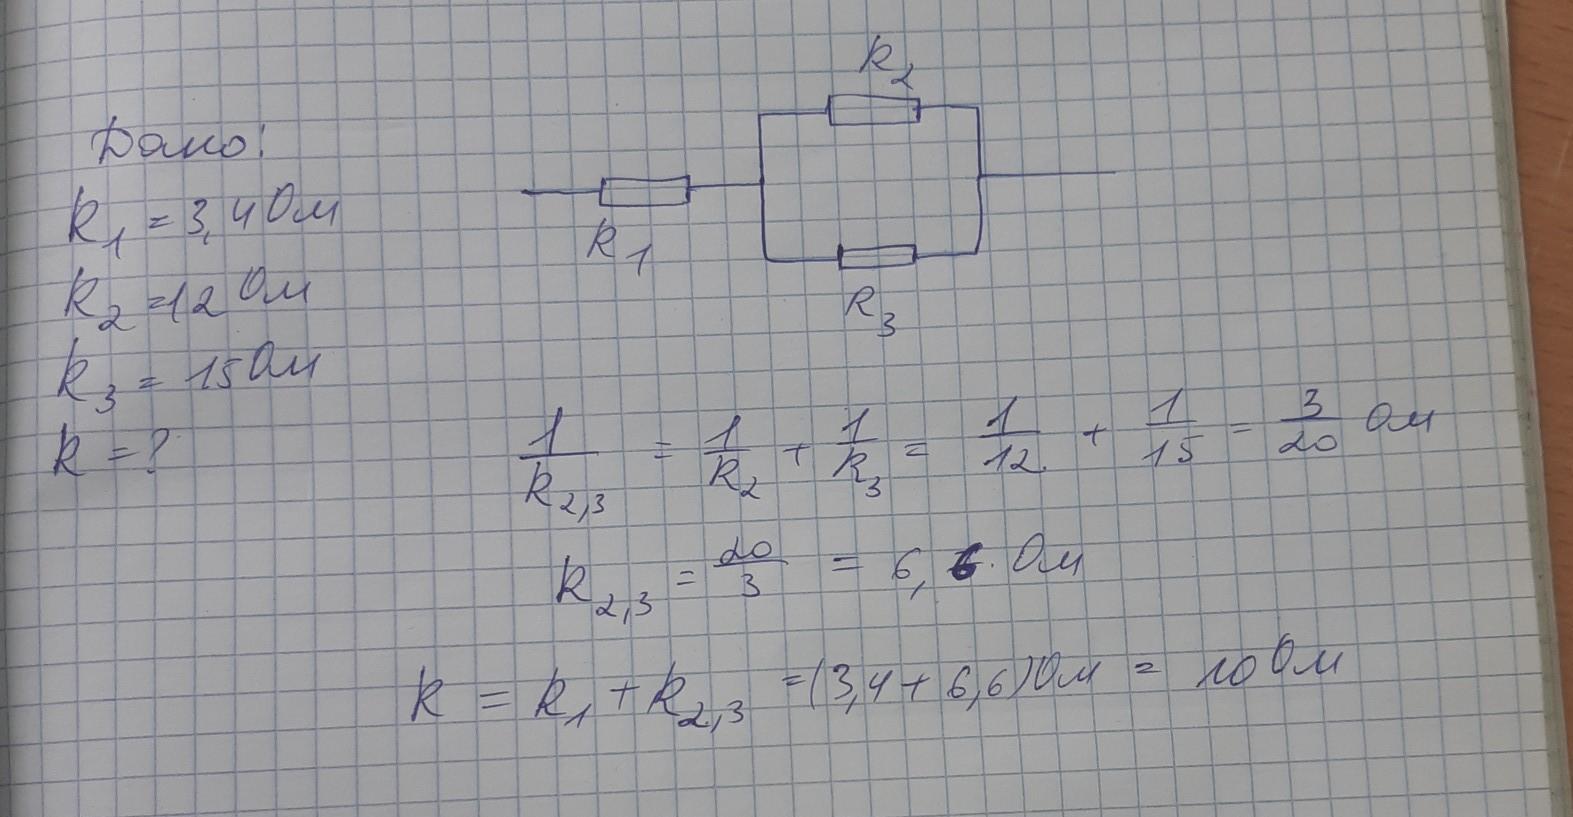 Дано:
R₁ = 3,4 Ом
R₂ = 12 Ом
R₃ = 15 Ом
R = ?
R₂
R₁
R₃
1/R₂,₃ = 1/R₂ + 1/R₃ = 1/12 + 1/15 = 3/20 Ом
R₂,₃ = 20/3 = 6,6 Ом
R = R₁ + R₂,₃ = (3,4 + 6,6) Ом = 10 Ом